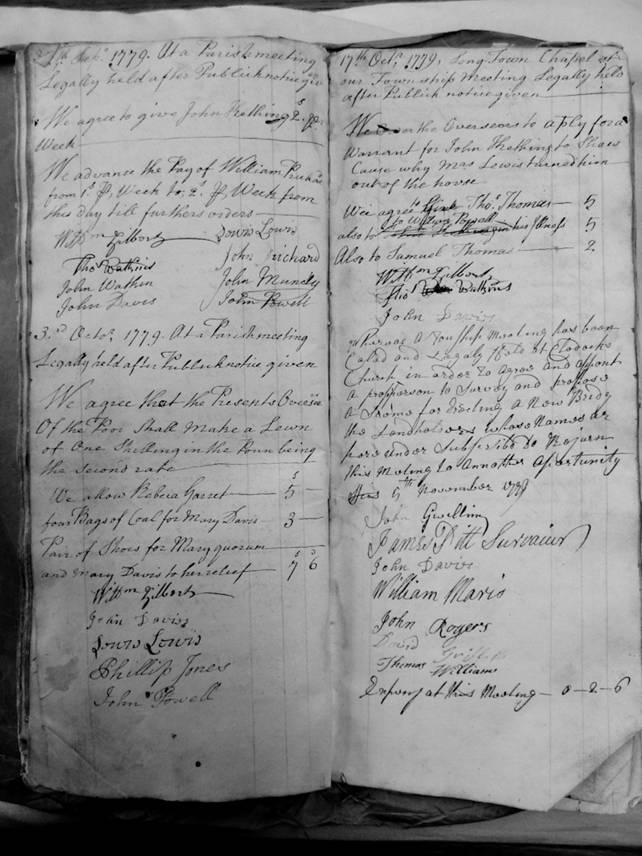 Sepr. 1779. At a Parish meeting
Legally held after Publick notice
We agree to give John Thething 2s pr
Week
We advance the Pay of William
from 1s pr Week to 2s pr Week from
this day till further orders
Willm Gilbert
Lowis Lowis
Thos Watkins
John Prichard
John Watkin
John Mundy
John Davis
John Powell
3rd Octor 1779. At a Parish meeting
Legally held after Publick notice given
We agree that the Presents
Of the Poor Shall Make a Lewn
of One Shilling in the Poun being
the Second rate
We allow Rebera Garret 5
four Bags of Coal for Mary Davis 3
Pair of Shoes for Mary quorum
and Mary Davis to her relief 7 6
Willm Gilbert
John Davis
Lowis Lowis
Phillip Jones
John Powell
17th Octr 1779, Long Town Chapel at
our Township Meeting Legally held
after Publick notice given
We the Overseors to Aply for a
Warrant for John Thething to Shoes
Cause why Mrs Lewis turned him
out of the house
Wee agree to Thos Thomas 5
to William Powell
also to in his Illness 5
Also to Samuel Thomas 2
Willm Gilbert
Thos Watkins
John Davis
Wharaas A Township Meeting has been
Caled and Legaly Held at Clodock
Church in order to Agree and Apont
A propperson to Survey and propose
A Seame for Erecting A New Bridg
the Landholders whose Names ar
here under Subscribed do Rejurn
this Meeting to Annother Aportunity
this 5th November 1779
John Gwillim
James Pitt Survaiur
John Davis
William Maris
John Rogers
David
Thomas Williams
Expenc at this Meeting 0-2-6